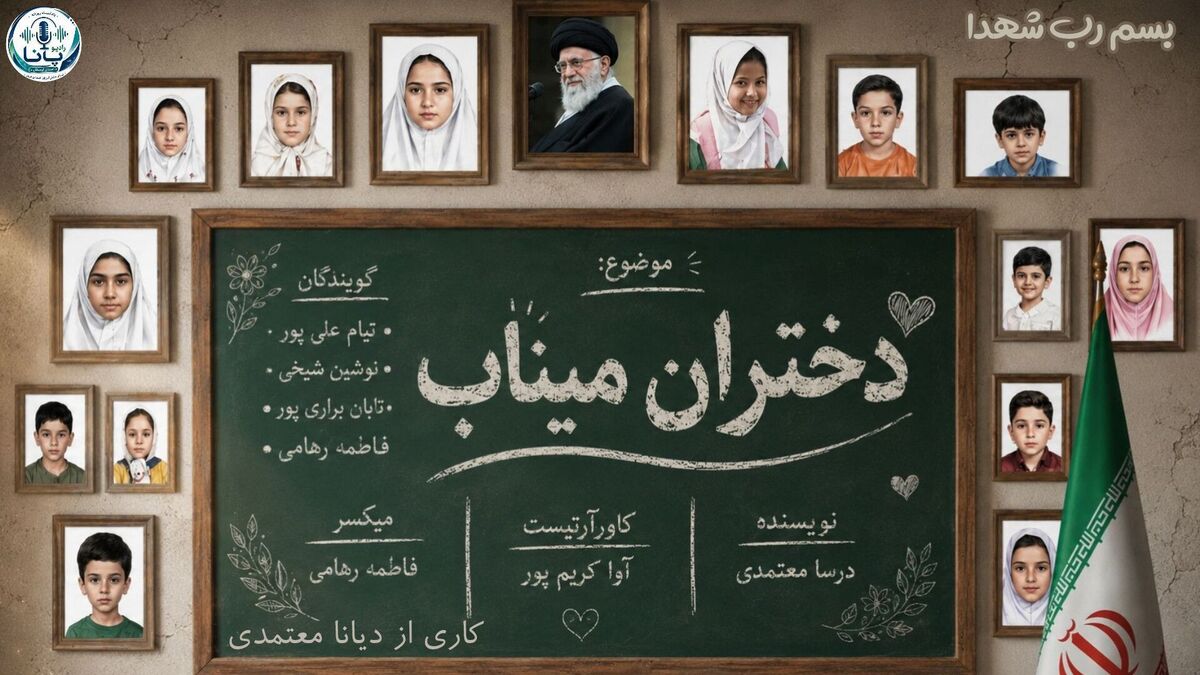 بسم رب شهدا
رادیو
پانا
موضوع:
دختران میناب
گویندگان
تیام علی پور
نوشین شیخی
تابان براری پور
فاطمه رهامی
نویسنده
درسا معتمدی
کاورآرتیست
آوا کریم پور
میکسر
فاطمه رهامی
کاری از دیانا معتمدی